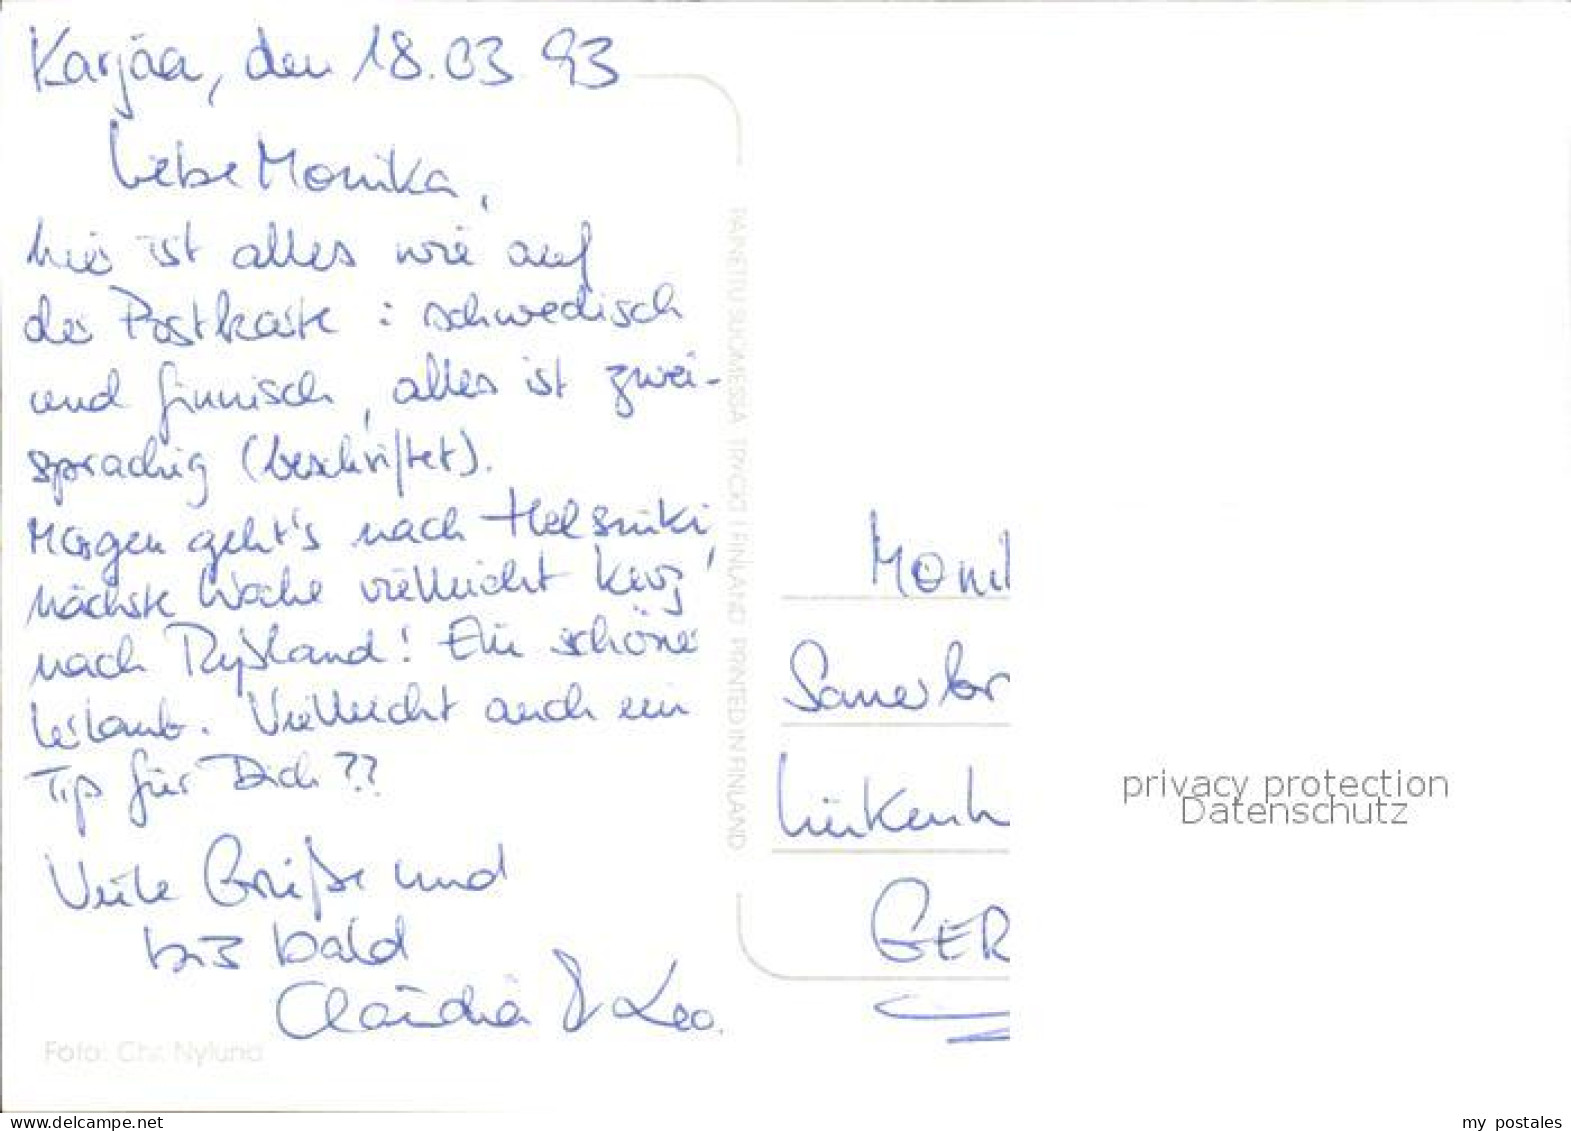 Karjaa, den 18.03 93
Liebe Monika,
hier ist alles wie auf
der Postkarte : schwedisch
und finnisch, alles ist zwei-
sprachig (beschriftet).
Morgen geht's nach Helsinki,
nächste Woche vielleicht kurz
nach Rußland! Ein schöner
Urlaub. Vielleicht auch ein
Tip für Dich??
Viele Grüße und
bis bald
Claudia & Leo.
Foto: Chr. Nylund
PAINETTU SUOMESSA TRYCKT I FINLAND PRINTED IN FINLAND
Moni
GER
privacy protection
Datenschutz
www.delcampe.net
my_postales